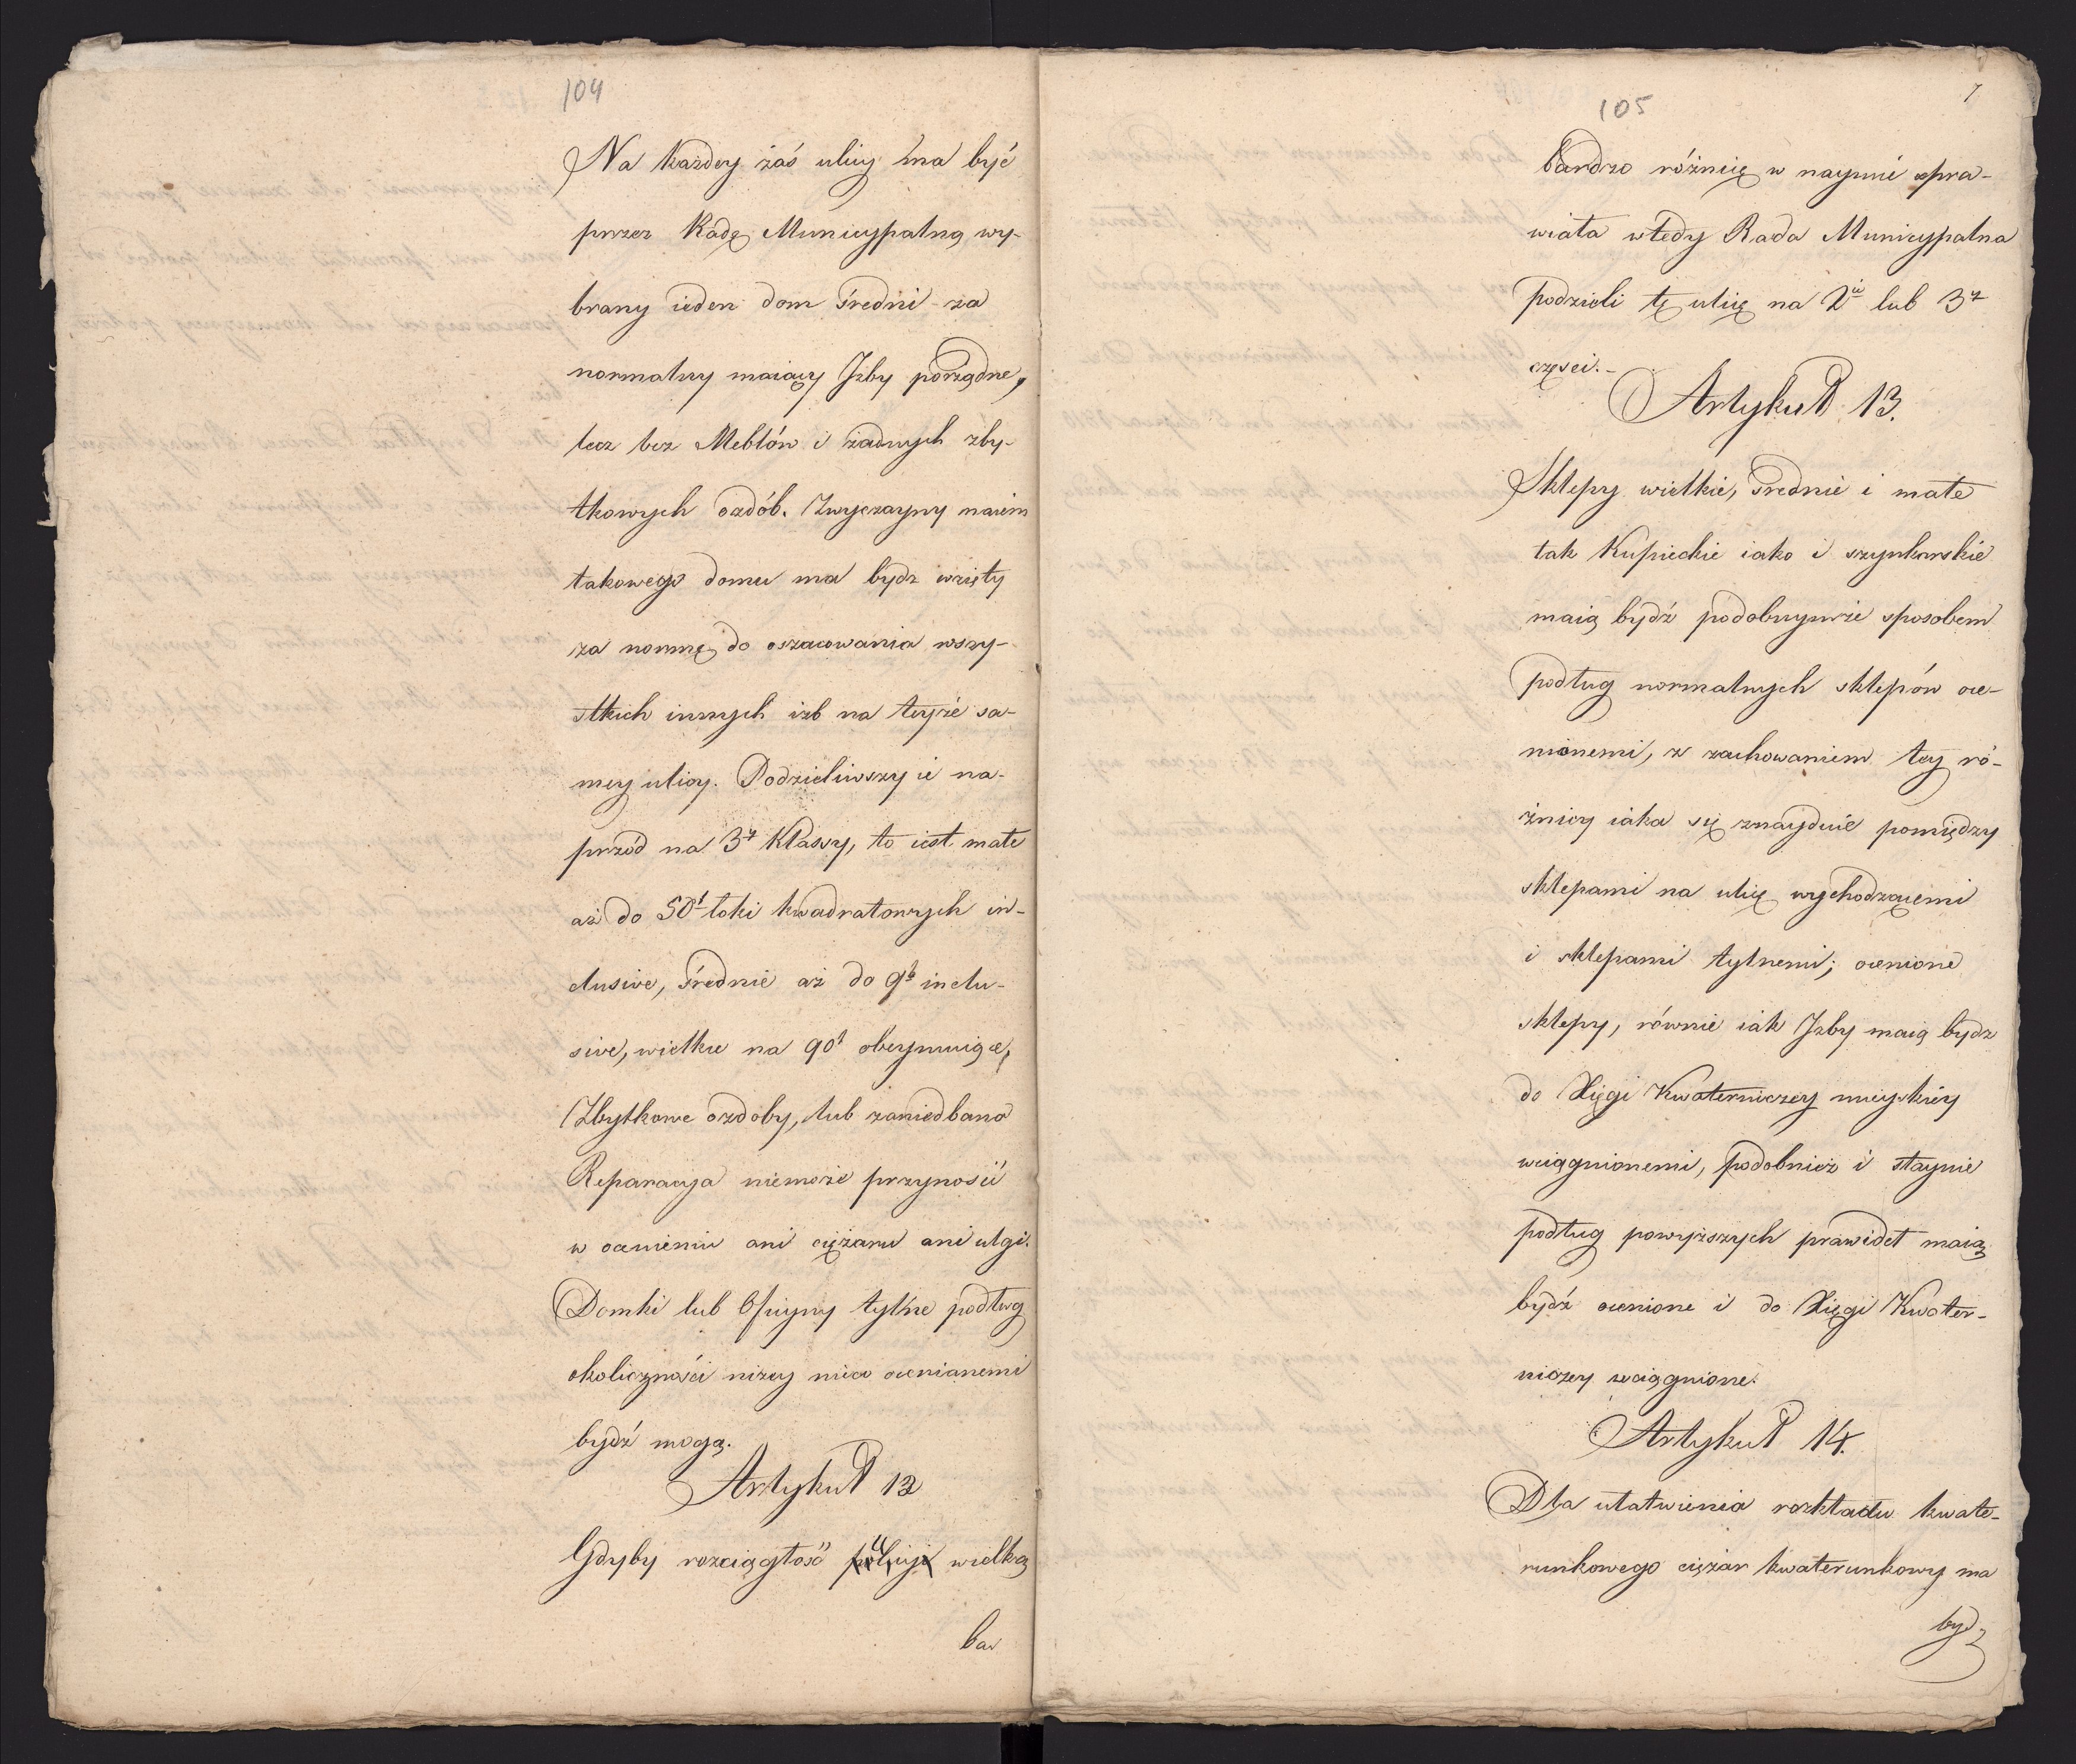 104
Na każdey zaś ulicy ma być
przez Radę Municypalną wy-
brany ieden dom średni za
normalny maiący Jzby porządne,
lecz bez Meblów i żadnych zby-
tkowych ozdób. Zwyczayny naiem
takowego domu ma bydz wzięty
za normę do oszacowania wszy-
stkich innych izb na teyże sa-
mey ulicy. Podzieliwszy ie na-
przód na 3y Klassy, to iest małe
aż do 50t łoki kwadratowych in-
clusive, średnie aż do 9t inclu-
sive, wielkie na 90t obeymuiące,
Zbytkowe ozdoby, lub zaniedbana
Reparacyja niemoże przynosić
w ocenieniu ani ciężaru ani ulgi.
Domki lub Oficyny tylne podług
okoliczności niżey nieco ocenianemi
bydź mogą.
Artykuł 12
Gdyby rozciągłość wielką
bar
105
7
bardzo różnicę w naymie spra-
wiała wtedy Rada Municypalna
podzieli tę ulicę na 2ie lub 3y
części.-
Artykuł 13.
Sklepy wielkie, średnie i małe
tak Kupieckie iako i szynkarskie
maią bydź podobnymże sposobem
podług normalnych sklepów oce-
nionemi, z zachowaniem tey ró-
żnicy iaka się znayduie pomiędzy
sklepami na ulicę wychodzącemi
i sklepami tylnemi; ocenione
sklepy, równie iak Jzby maią bydz
do Xięgi Kwaterniczey mieyskiéy
wciągnionemi, podobnież i staynie
podług powyższych prawideł maią
bydź ocenione i do Xięgi Kwater-
niczey wciągnione.
Artykuł 14.
Dla ułatwienia rozkładu kwate-
runkowego ciężar kwaterunkowy ma
bydz